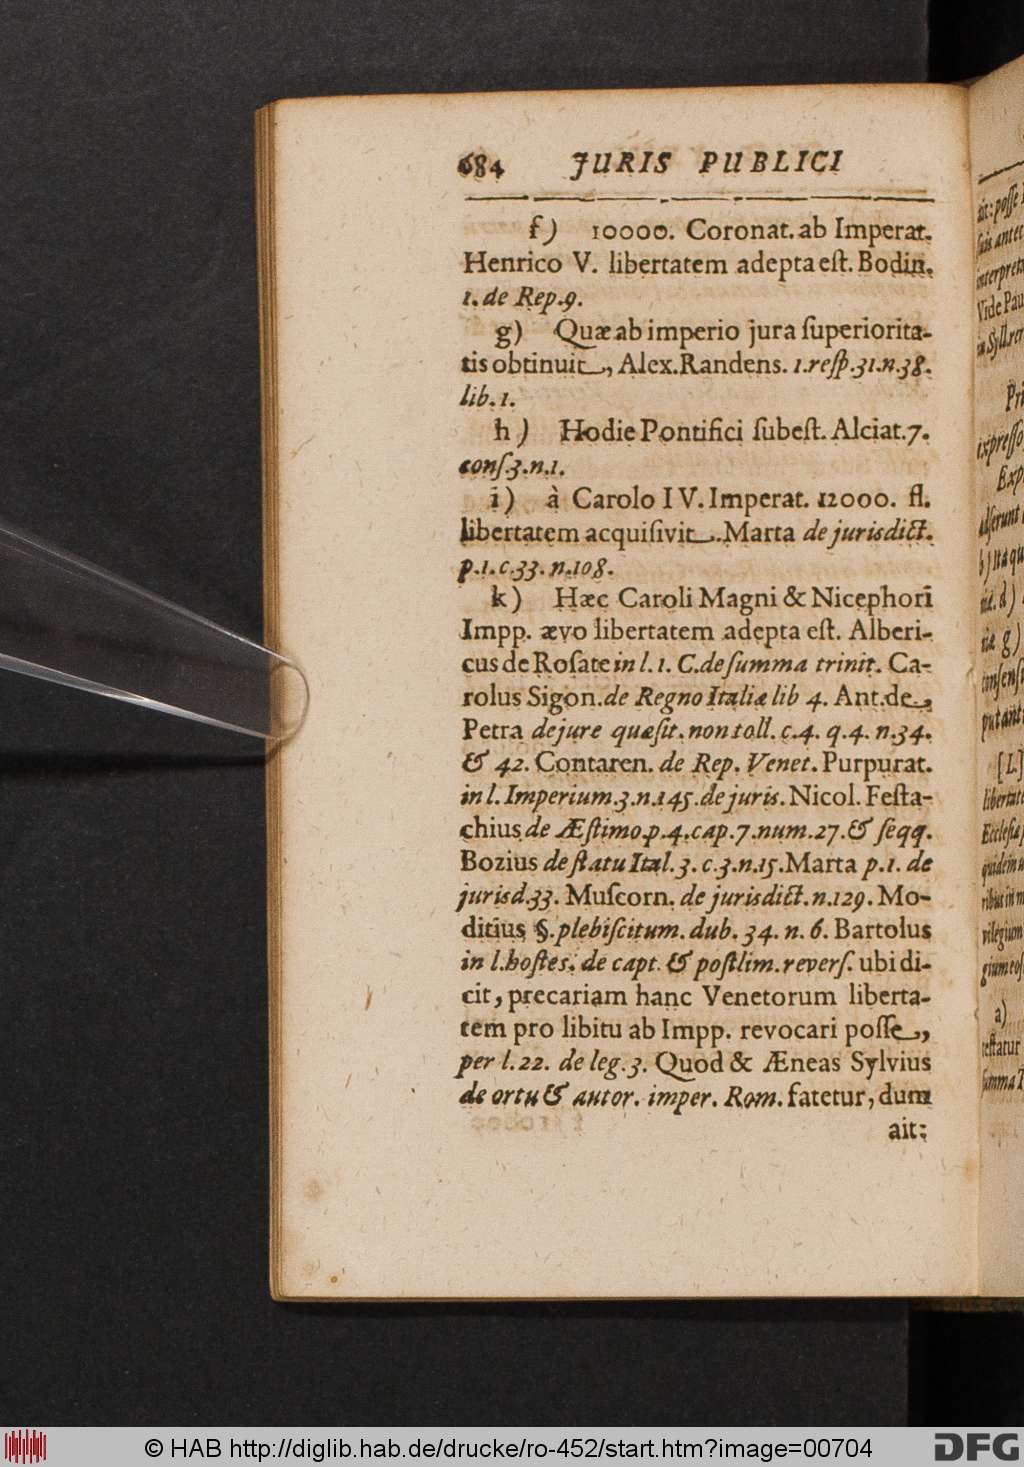 684 JURIS PUBLICI
f) 10000. Coronat. ab Imperat.
Henrico V. libertatem adepta eſt. Bodin.
1. de Rep. 9.
g) Quæ ab imperio jura ſuperiorita-
tis obtinuit, Alex. Randens. 1. reſp. 31. n. 38.
lib. 1.
h) Hodie Pontifici ſubeſt. Alciat. 7.
conſ. 3. n. 1.
i) à Carolo IV. Imperat. 12000. fl.
libertatem acquiſivit. Marta de jurisdict.
p. 1. c. 33. n. 108.
k) Hæc Caroli Magni & Nicephori
Impp. ævo libertatem adepta eſt. Alberi-
cus de Roſate in l. 1. C. de ſumma trinit. Ca-
rolus Sigon. de Regno Italiæ lib 4. Ant. de,
Petra de jure quæſit. non toll. c. 4. q. 4. n. 34.
& 42. Contaren. de Rep. Venet. Purpurat.
in l. Imperium. 3. n. 145. de juris. Nicol. Feſta-
chius de Æſtimo. p. 4. cap. 7. num. 27. & ſeqq.
Bozius de ſtatu Ital. 3. c. 3. n. 15. Marta p. 1. de
jurisd. 33. Muſcorn. de jurisdict. n. 129. Mo-
ditius §. plebiſcitum. dub. 34. n. 6. Bartolus
in l. hoſtes. de capt. & poſtlim. reverſ. ubi di-
cit, precariam hanc Venetorum liberta-
tem pro libitu ab Impp. revocari poſſe,
per l. 22. de leg. 3. Quod & Æneas Sylvius
de ortu & autor. imper. Rom. fatetur, dum
ait:
ait: poſſe
ſuis
Vide Pau
Pri
expreſſo
Exp
aſſerunt
b) Ita qu
d)
g)
conſenſ
putant
[L]
libertate
Eccleſia
quidem
vilegium
a)
teſtatur
ſumma T
© HAB http://diglib.hab.de/drucke/ro-452/start.htm?image=00704
DFG